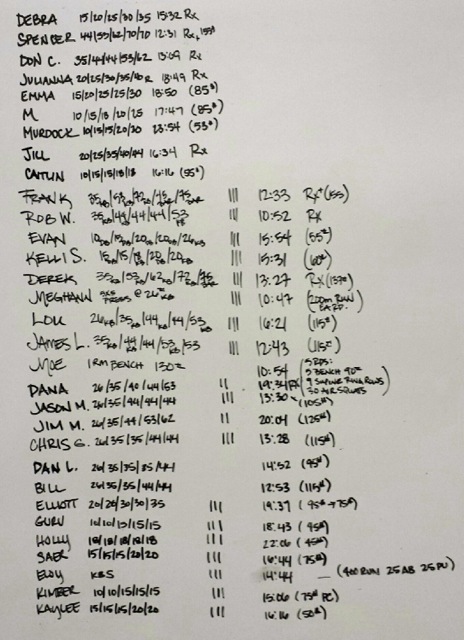 DEBRA 15/20/25/30/35 15:32 Rx
SPENCER 44/53/62/70/70 12:31 Rx+ 155#
DON C. 35/44/44/53/62 13:09 Rx
JULIANNA 20/25/30/35/40R 18:49 Rx
EMMA 15/20/25/25/30 18:50 (85#)
M 10/15/18/20/25 17:47 (85#)
MURDOCK 10/15/15/20/30 23:54 (53#)
JILL 20/25/35/40/44 16:34 Rx
CAITLIN 10/15/18/18/18 16:16 (55#)
FRANK ||| 12:33 Rx+ (155)
ROB W. 35/44/44/44/53 ||| 10:52 Rx
EVAN 20/26KB ||| 15:54 (55#)
KELLI S. 15/15/18/20/20 ||| 15:31 (60#)
DEREK 35/53/62/72/75 ||| 13:27 Rx (137#)
MEGHANN 5X5 PRESS @ 26# KB ||| 10:47 (200m RUN
LOU 26/35/44/44/53 ||| 16:21 (115#)
JAMES L. 35/44/44/53/53 ||| 12:43 (115#)
MOE 1RM BENCH 130# 10:54 (5 RDS: 5 BENCH 90# 9 RING ROWS 30 AIR SQUATS)
DANA 26/35/40/44/53 || 19:34 RX
JASON M. 26/35/44/44/44 ||| 13:30 (105#)
JIM M. 26/35/44/53/62 || 20:04 (125#)
CHRIS G. 26/35/35/44/44 ||| 13:28 (115#)
DAN L. 26/35/35/35/44 14:52 (95#)
BILL 26/35/35/44/44 12:53 (115#)
ELLIOTT 20/26/30/30/35 ||| 19:37 (95# → 75#)
GURU 10/10/15/15/15 ||| 18:43 (45#)
HOLLY 18/18/18/18/18 ||| 22:06 (45#)
SAER 15/15/15/20/20 ||| 16:44 (75#)
ELOY KBS ||| 14:44 — (400 RUN 25 AB 25 PU)
KIMBER 10/10/15/15/15 ||| 15:06 (75# PC)
KAYLEE 15/15/15/20/20 ||| 16:16 (50#)